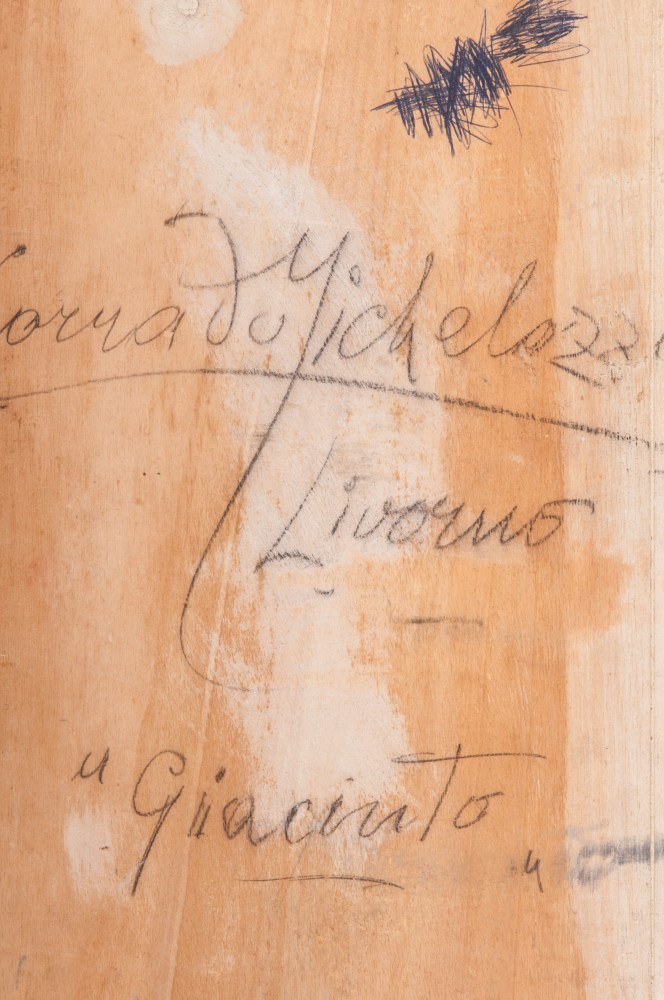 Corrado Michelozzi
Livorno
"Giacinto"